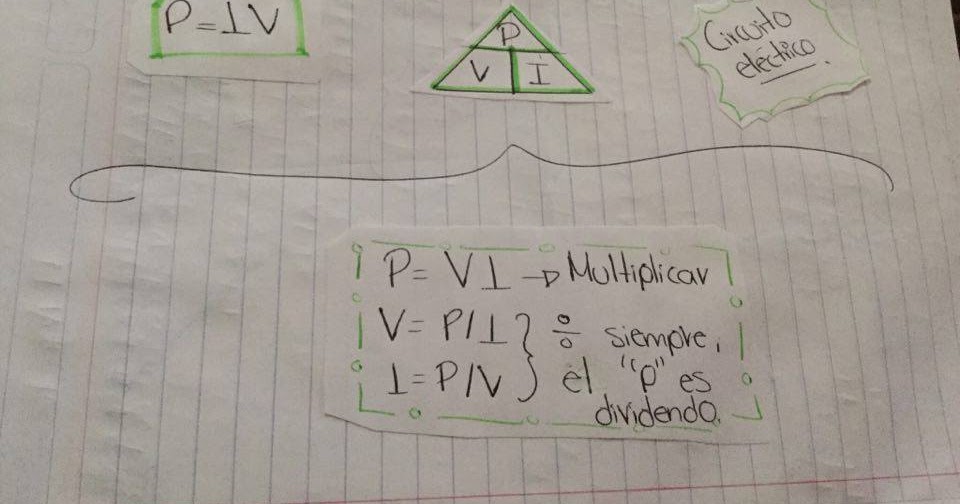 P=IV
P
V I
Circuito
eléctrico.
P= VI → Multiplicar
V= P/I } ÷ siempre,
I= P/V } el "p" es
dividendo.